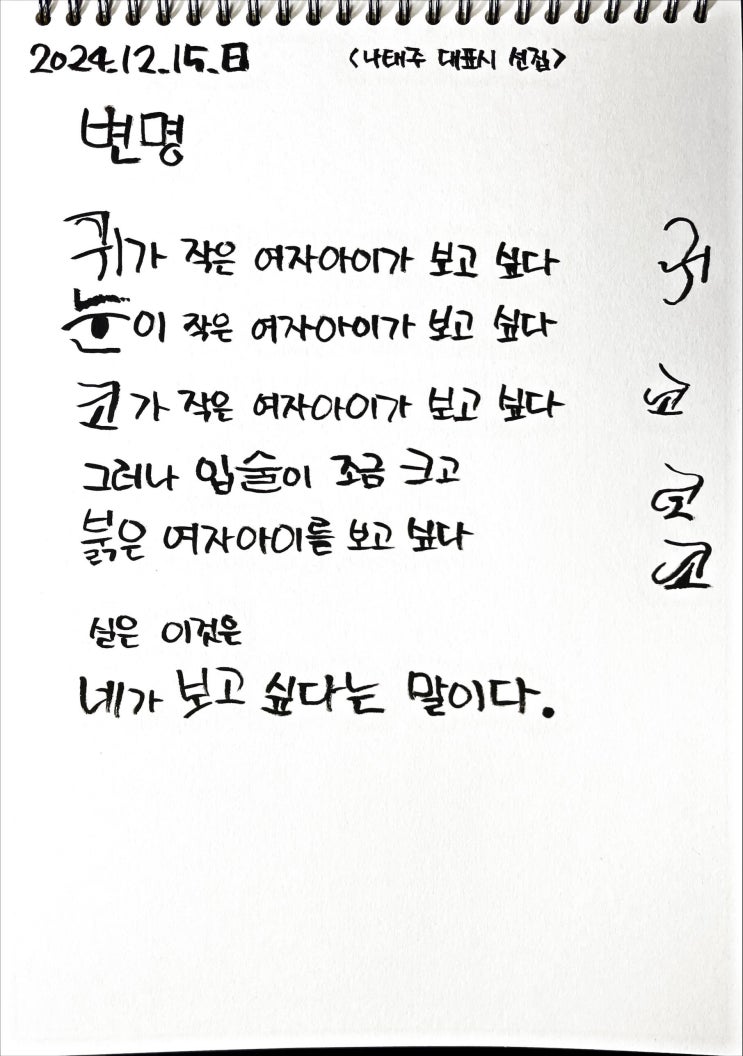 2024.12.15.日
<나태주 대표시 선집>
변명
귀가 작은 여자아이가 보고 싶다
눈이 작은 여자아이가 보고 싶다
코가 작은 여자아이가 보고 싶다
그러나 입술이 조금 크고
붉은 여자아이를 보고 싶다
실은 이것은
네가 보고 싶다는 말이다.
귀
코
코
코